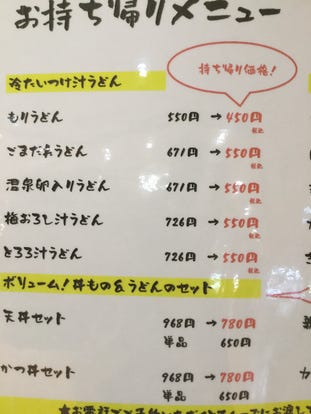 お持ち帰りメニュー
持ち帰り価格!
冷たいつけ汁うどん
もりうどん 550円 → 450円 税込
ごまだれうどん 671円 → 550円 税込
温泉卵入りうどん 671円 → 550円 税込
梅おろし汁うどん 726円 → 550円 税込
とろろ汁うどん 726円 → 550円 税込
ボリューム!丼もの&うどんのセット
天丼セット 968円 → 780円
単品 650円
かつ丼セット 968円 → 780円
単品 650円